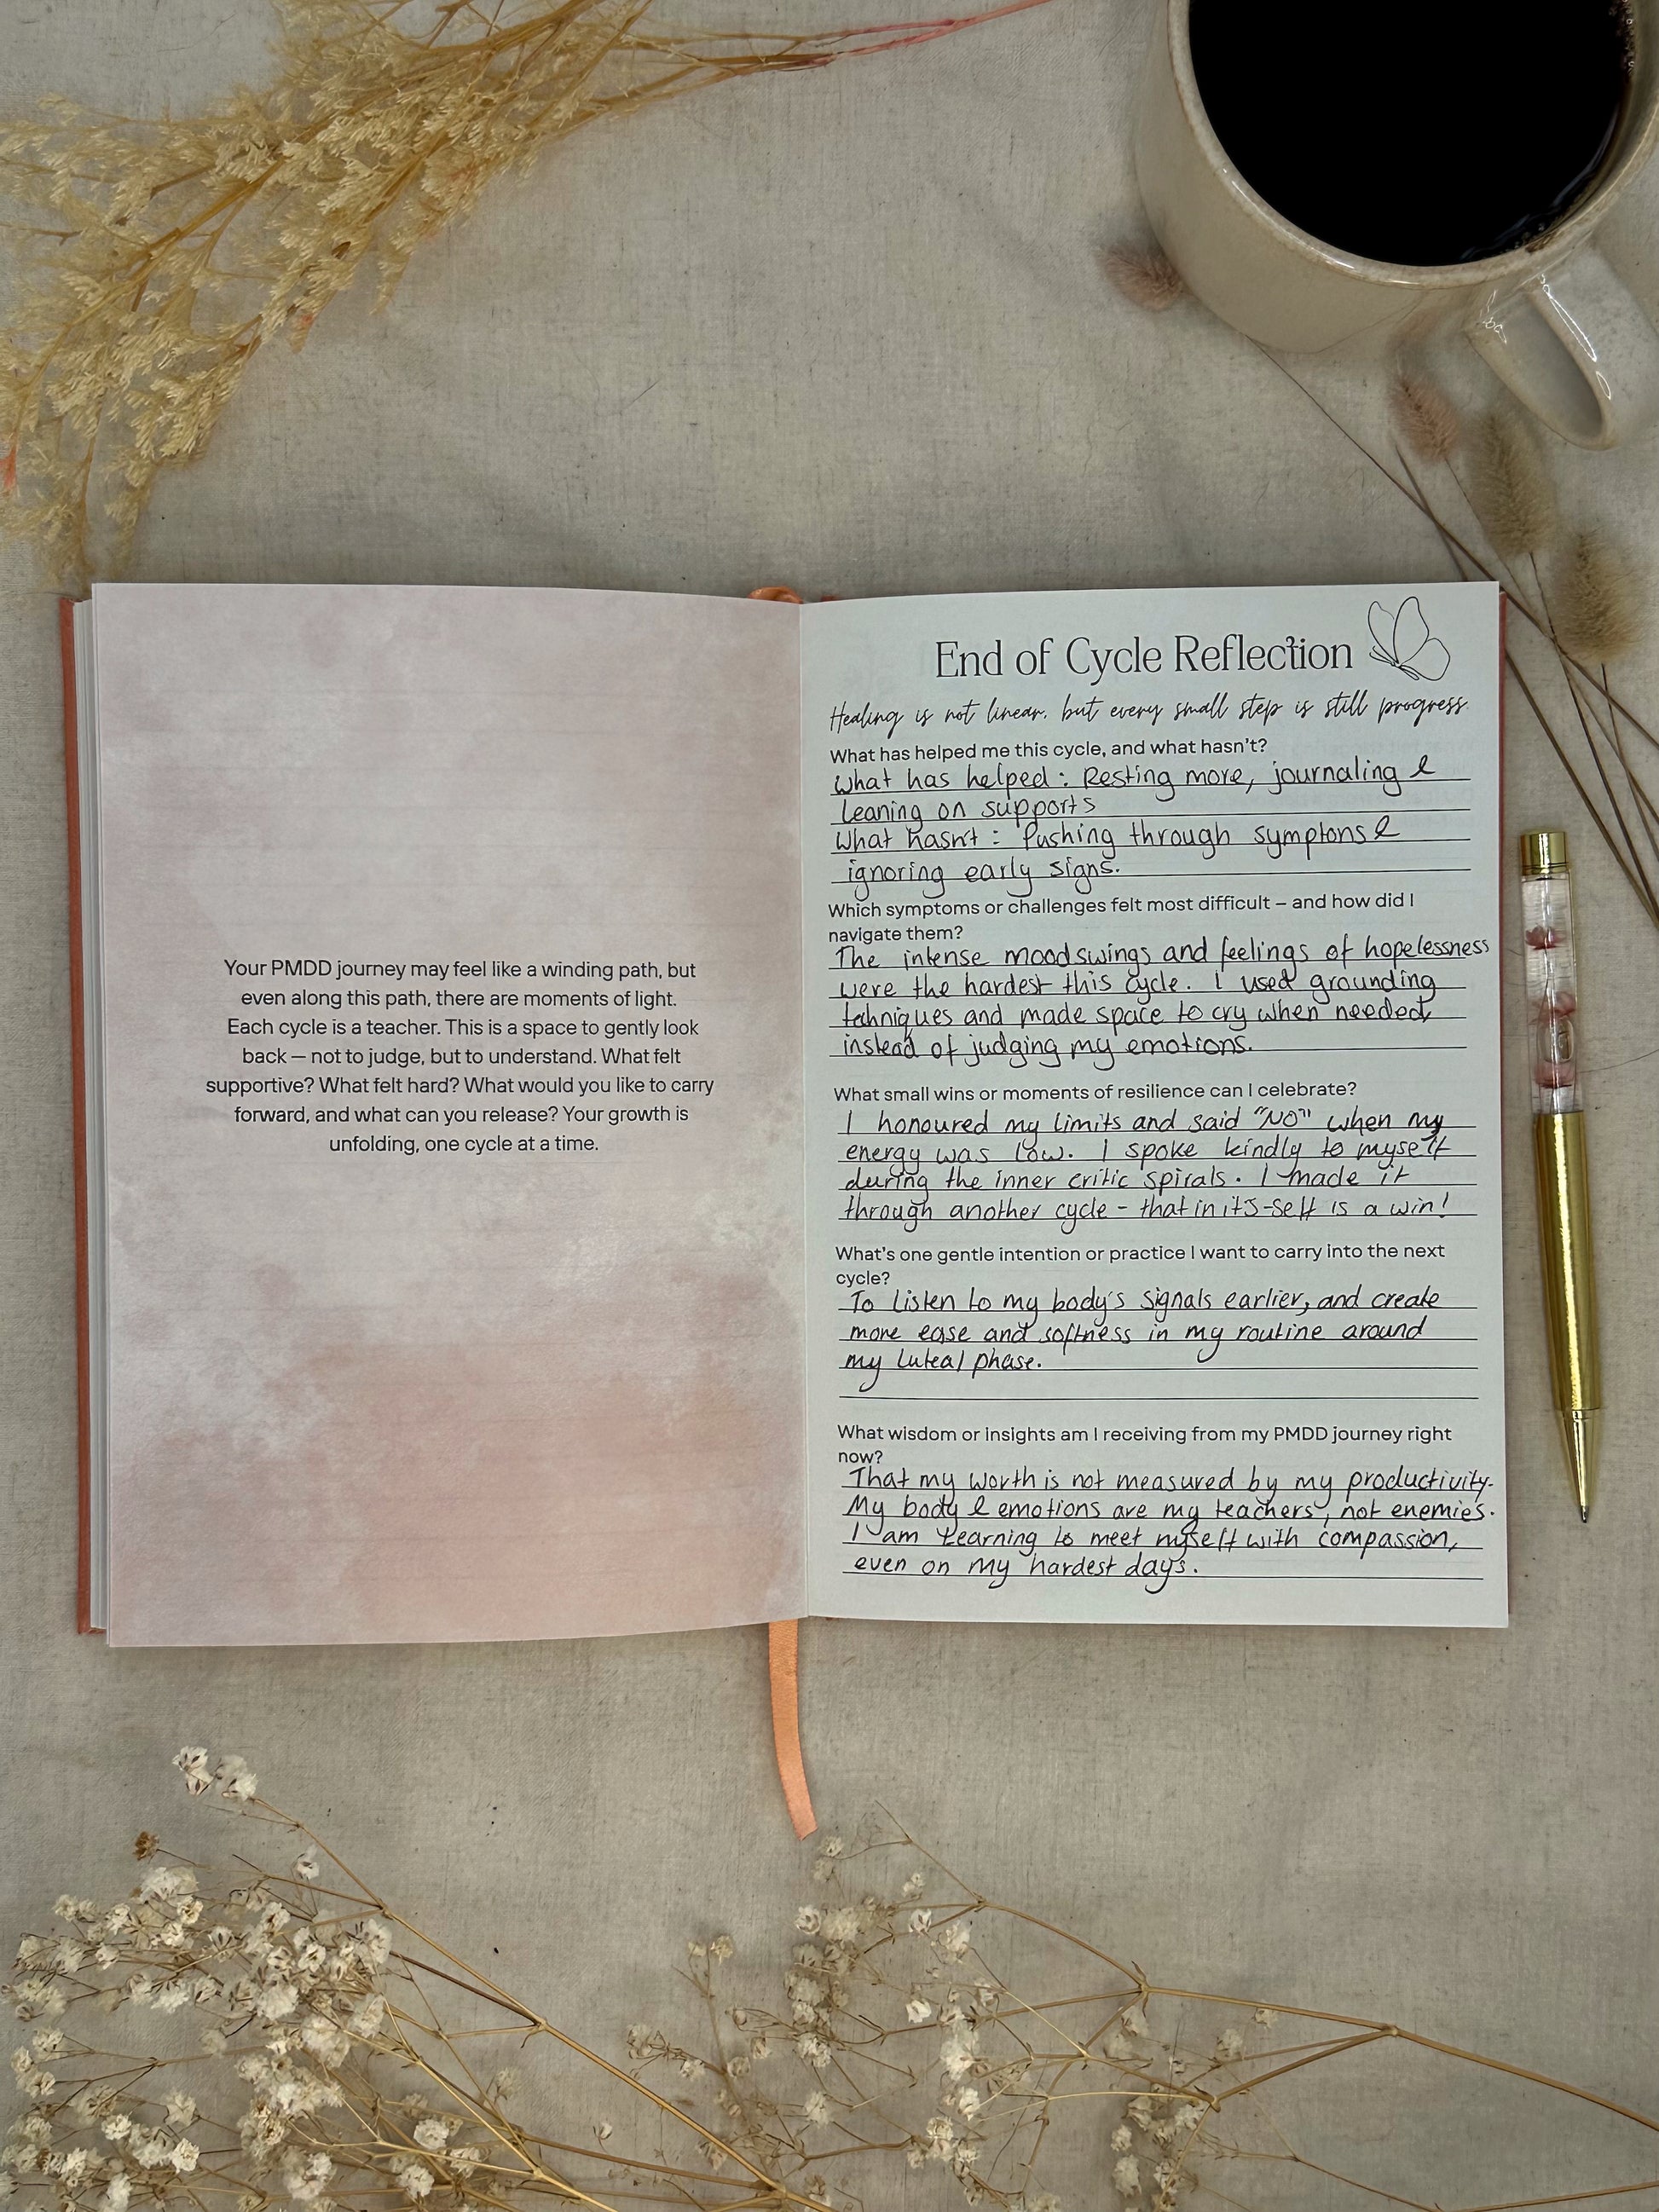 Your PMDD journey may feel like a winding path, but
even along this path, there are moments of light.
Each cycle is a teacher. This is a space to gently look
back – not to judge, but to understand. What felt
supportive? What felt hard? What would you like to carry
forward, and what can you release? Your growth is
unfolding, one cycle at a time.
End of Cycle Reflection
Healing is not linear, but every small step is still progress.
What has helped me this cycle, and what hasn't?
What has helped: Resting more, journaling &
leaning on supports
What hasn't: Pushing through symptons &
ignoring early signs.
Which symptoms or challenges felt most difficult – and how did I
navigate them?
The intense moodswings and feelings of hopelessness
were the hardest this cycle. I used grounding
tehniques and made space to cry when needed,
instead of judging my emotions.
What small wins or moments of resilience can I celebrate?
I honoured my limits and said "NO" when my
energy was low. I spoke kindly to myself
during the inner critic spirals. I made it
through another cycle - that in it's-self is a win!
What's one gentle intention or practice I want to carry into the next
cycle?
To listen to my body's signals earlier, and create
more ease and softness in my routine around
my luteal phase.
What wisdom or insights am I receiving from my PMDD journey right
now?
That my worth is not measured by my productivity.
My body & emotions are my teachers, not enemies.
I am learning to meet myself with compassion,
even on my hardest days.